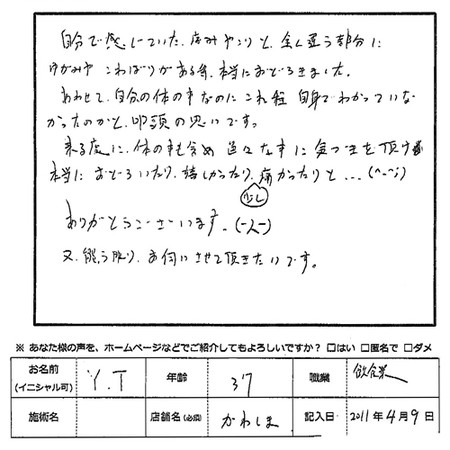 自分で感じていた、痛みやこりと、全く違う部分に
ゆがみや こわばりがある事、本当におどろきました。
あわせて、自分の体の事なのに これ程 自身でわかっていな
かったのかと、叩頭の思いです。
来る度に、体の事も含め 色々な事に気づきを頂き
本当に おどろいたり、嬉しかったり、痛かったりと…(^-^;)
少し
ありがとうございます。(-人-)
又、お伺いさせて頂きたいです。
※ あなた様の声を、ホームページなどでご紹介してもよろしいですか? □はい □匿名で □ダメ
お名前 (イニシャル可) Y.T 年齢 37 職業 飲食業
施術名 店舗名(必須) かわしま 記入日 2011年4月9日